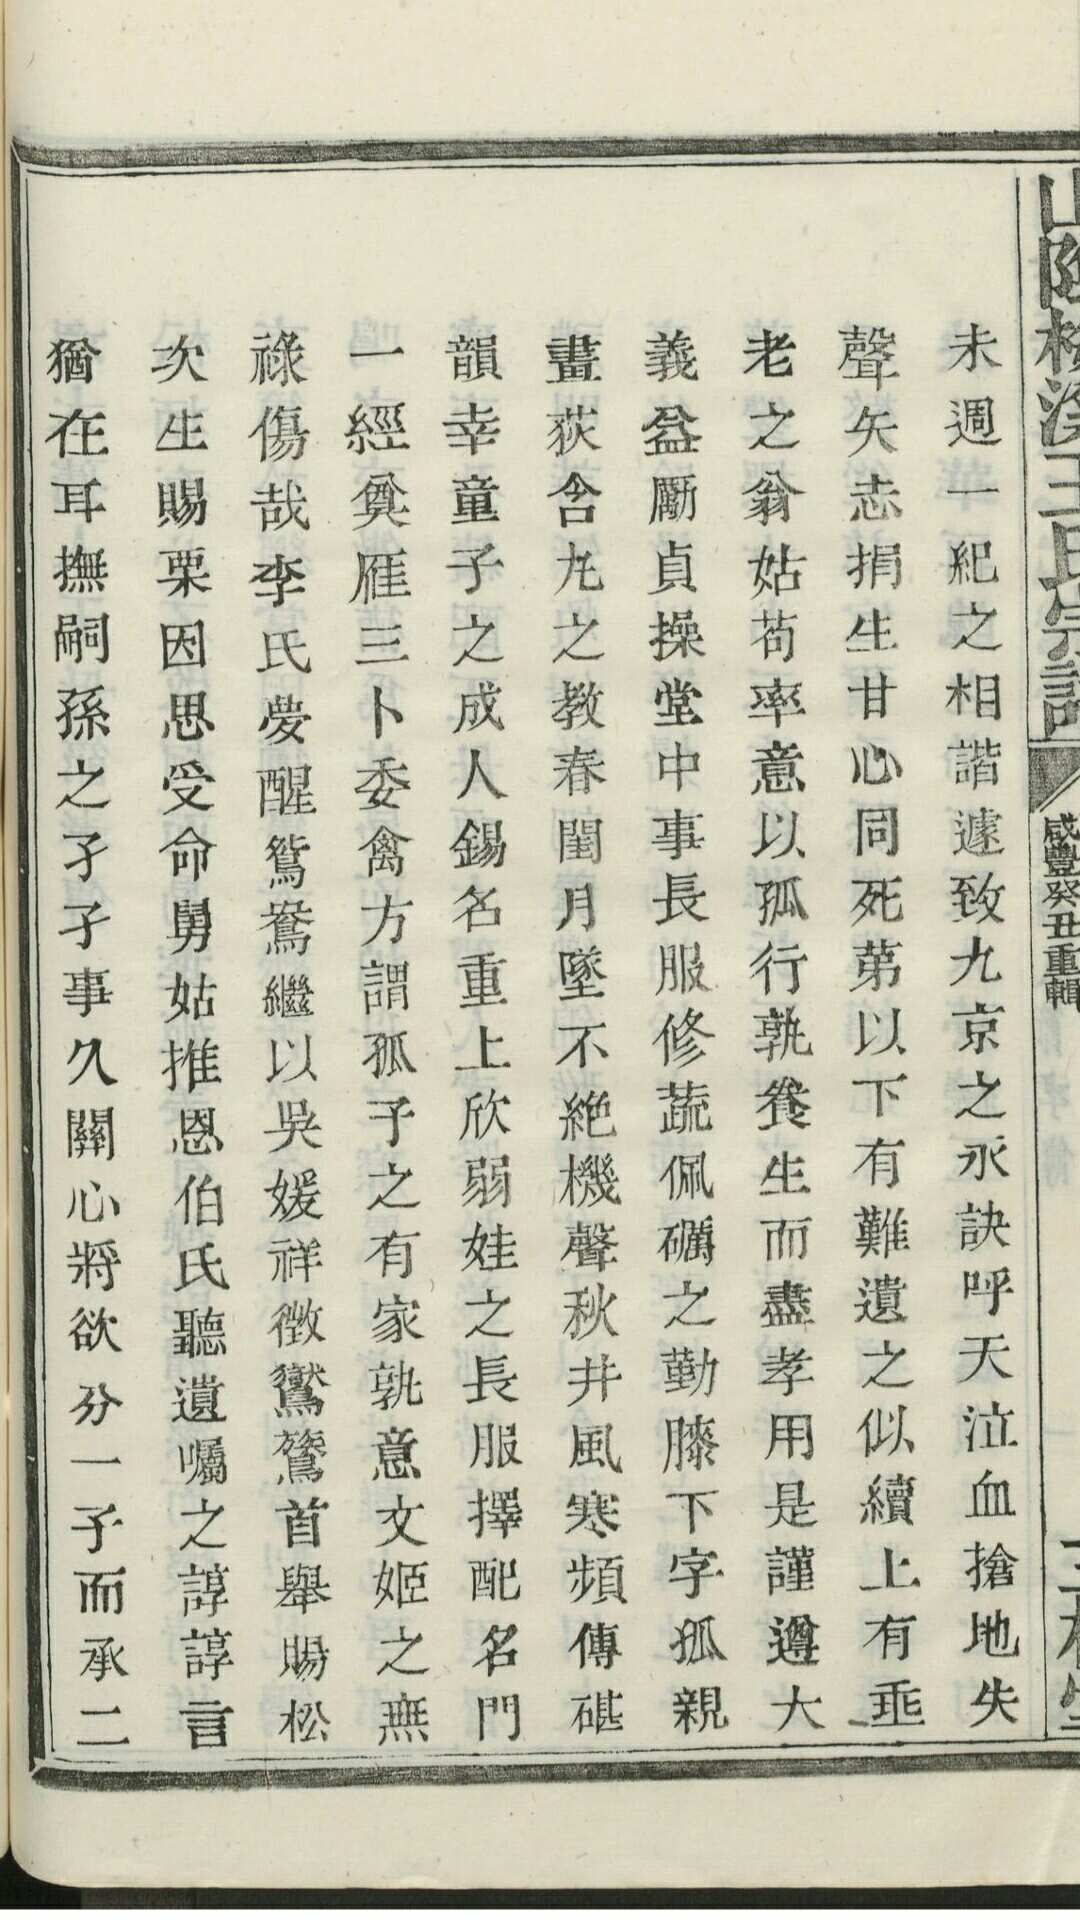 咸豐癸丑重輯
未週一紀之相諧遽致九京之永訣呼天泣血搶地失
聲矢志捐生甘心同死第以下有難遺之似續上有垂
老之翁姑苟率意以孤行孰養生而盡孝用是謹遵大
義益勵貞操堂中事長服修蔬佩礪之勤膝下字孤親
畫荻含丸之教春閨月墜不絕機聲秋井風寒頻傳碪
韻幸童子之成人錫名重上欣弱娃之長服擇配名門
一經奠雁三卜委禽方謂孤子之有家孰意文姬之無
祿傷哉李氏夢醒鴛鴦繼以吳媛祥徵鸑鷟首舉賜松
次生賜栗因思受命舅姑推恩伯氏聽遺囑之諄諄言
猶在耳撫嗣孫之孑孑事久關心將欲分一子而承二